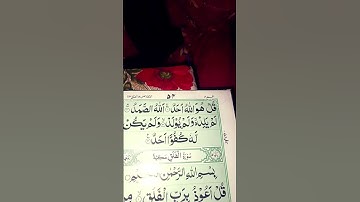 ٥٢
قُلْ هُوَ اللّٰهُ اَحَدٌ ۚ اَللّٰهُ الصَّمَدُ ۚ
لَمْ يَلِدْ ۙ وَلَمْ يُوْلَدْ ۙ وَلَمْ يَكُنْ
لَّهٗ كُفُوًا اَحَدٌ
سُوْرَةُ الْفَلَقِ مَكِّيَّةٌ
بِسْمِ اللّٰهِ الرَّحْمٰنِ الرَّحِيْمِ
قُلْ اَعُوْذُ بِرَبِّ الْفَلَقِ ۙ مِنْ